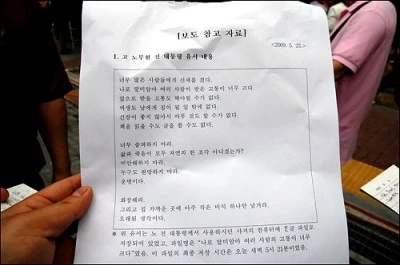 [보도 참고 자료]
<2009. 5. 23.>
1. 고 노무현 전 대통령 유서 내용
너무 많은 사람들에게 신세를 졌다.
나로 말미암아 여러 사람이 받은 고통이 너무 크다
앞으로 받을 고통도 헤아릴 수가 없다.
여생도 남에게 짐이 될 일 밖에 없다.
건강이 좋지 않아서 아무 것도 할 수가 없다.
책을 읽을 수도 글을 쓸 수도 없다.
너무 슬퍼하지 마라.
삶과 죽음이 모두 자연의 한 조각 아니겠는가?
미안해하지 마라.
누구도 원망하지 마라.
운명이다.
화장해라.
그리고 집 가까운 곳에 아주 작은 비석 하나만 남겨라.
오래된 생각이다.
※ 위 유서는 노 전 대통령께서 사용하시던 사저의 컴퓨터에 한글 파일로
저장되어 있었고, 파일명은 "나로 말미암아 여러 사람의 고통이 너무
크다"였음. 이 파일의 최종 저장 시간은 오늘 새벽 5시 21분이었음.